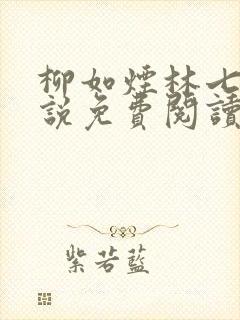 柳如煙林七
說免費閱讀
紫若藍